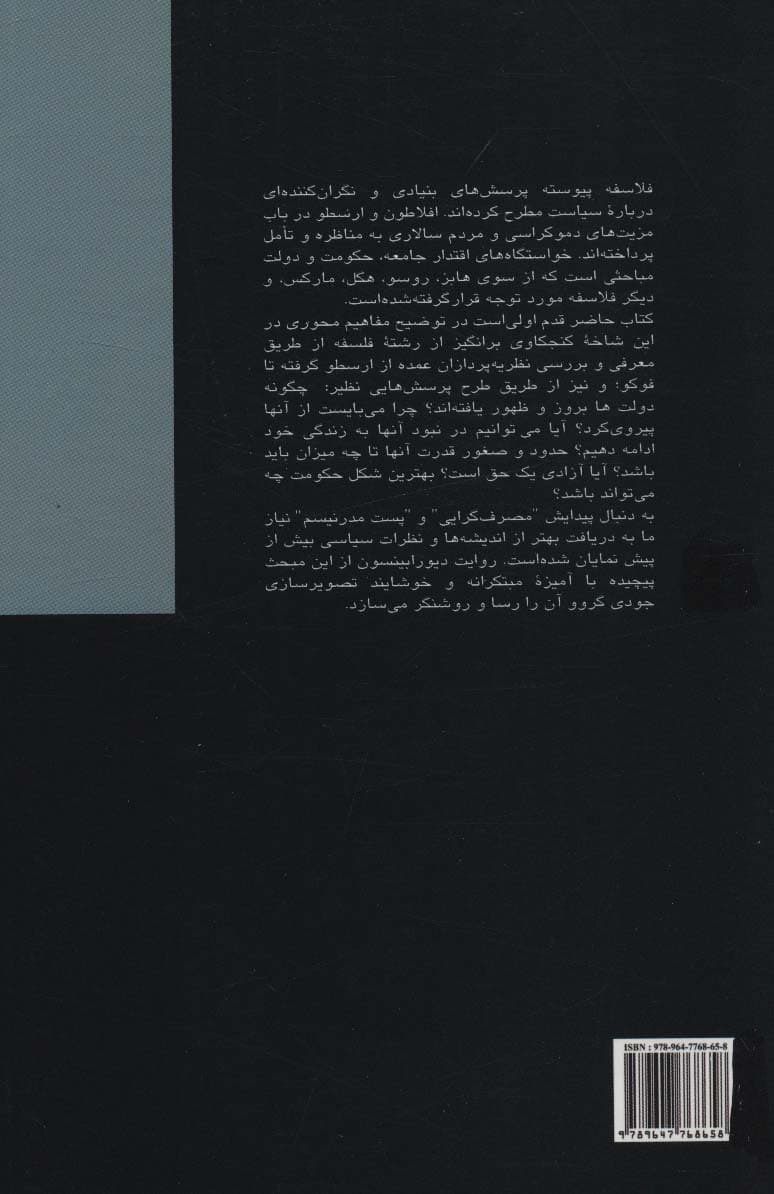 فلاسفه پیوسته پرسش‌های بنیادی و نگران‌کننده‌ای
دربارهٔ سیاست مطرح کرده‌اند. افلاطون و ارسطو در باب
مزیت‌های دموکراسی و مردم سالاری به مناظره و تأمل
پرداخته‌اند. خواستگاه‌های اقتدار جامعه، حکومت و دولت
مباحثی است که از سوی هابز، روسو، هگل، مارکس، و
دیگر فلاسفه مورد توجه قرارگرفته‌شده‌است.
کتاب حاضر قدم اولی‌است در توضیح مفاهیم محوری در
این شاخهٔ کنجکاوی برانگیز از رشتهٔ فلسفه از طریق
معرفی و بررسی نظریه‌پردازان عمده از ارسطو گرفته تا
فوکو؛ و نیز از طریق طرح پرسش‌هایی نظیر: چگونه
دولت ها بروز و ظهور یافته‌اند؟ چرا می‌بایست از آنها
پیروی‌کرد؟ آیا می توانیم در نبود آنها به زندگی خود
ادامه دهیم؟ حدود و صغور قدرت آنها تا چه میزان باید
باشد؟ آیا آزادی یک حق است؟ بهترین شکل حکومت چه
می‌تواند باشد؟
به دنبال پیدایش "مصرف‌گرایی" و "پست مدرنیسم" نیاز
ما به دریافت بهتر از اندیشه‌ها و نظرات سیاسی بیش از
پیش نمایان شده‌است. روایت دیورابینسون از این مبحث
پیچیده با آمیزهٔ مبتکرانه و خوشایند تصویرسازی
جودی گروو آن را رسا و روشنگر می‌سازد.
ISBN : 978-964-7768-65-8
9 789647 768658